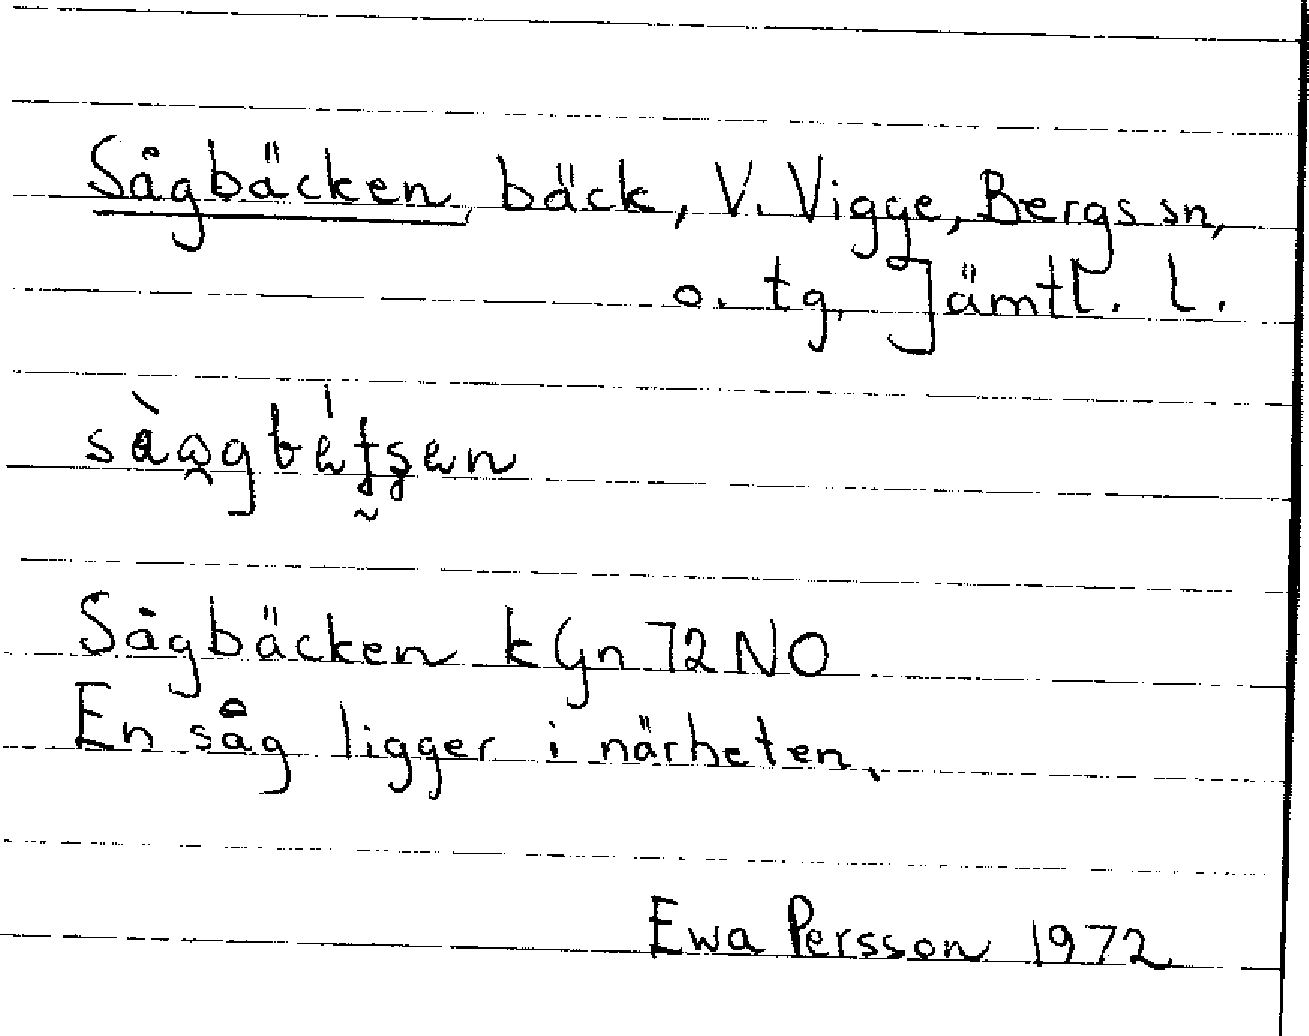 Sågbäcken bäck, V. Vigge, Bergs sn,
o. tg. Jämtl. l.
Sågbäcken kGn 72 NO
En såg ligger i närheten.
Ewa Persson 1972